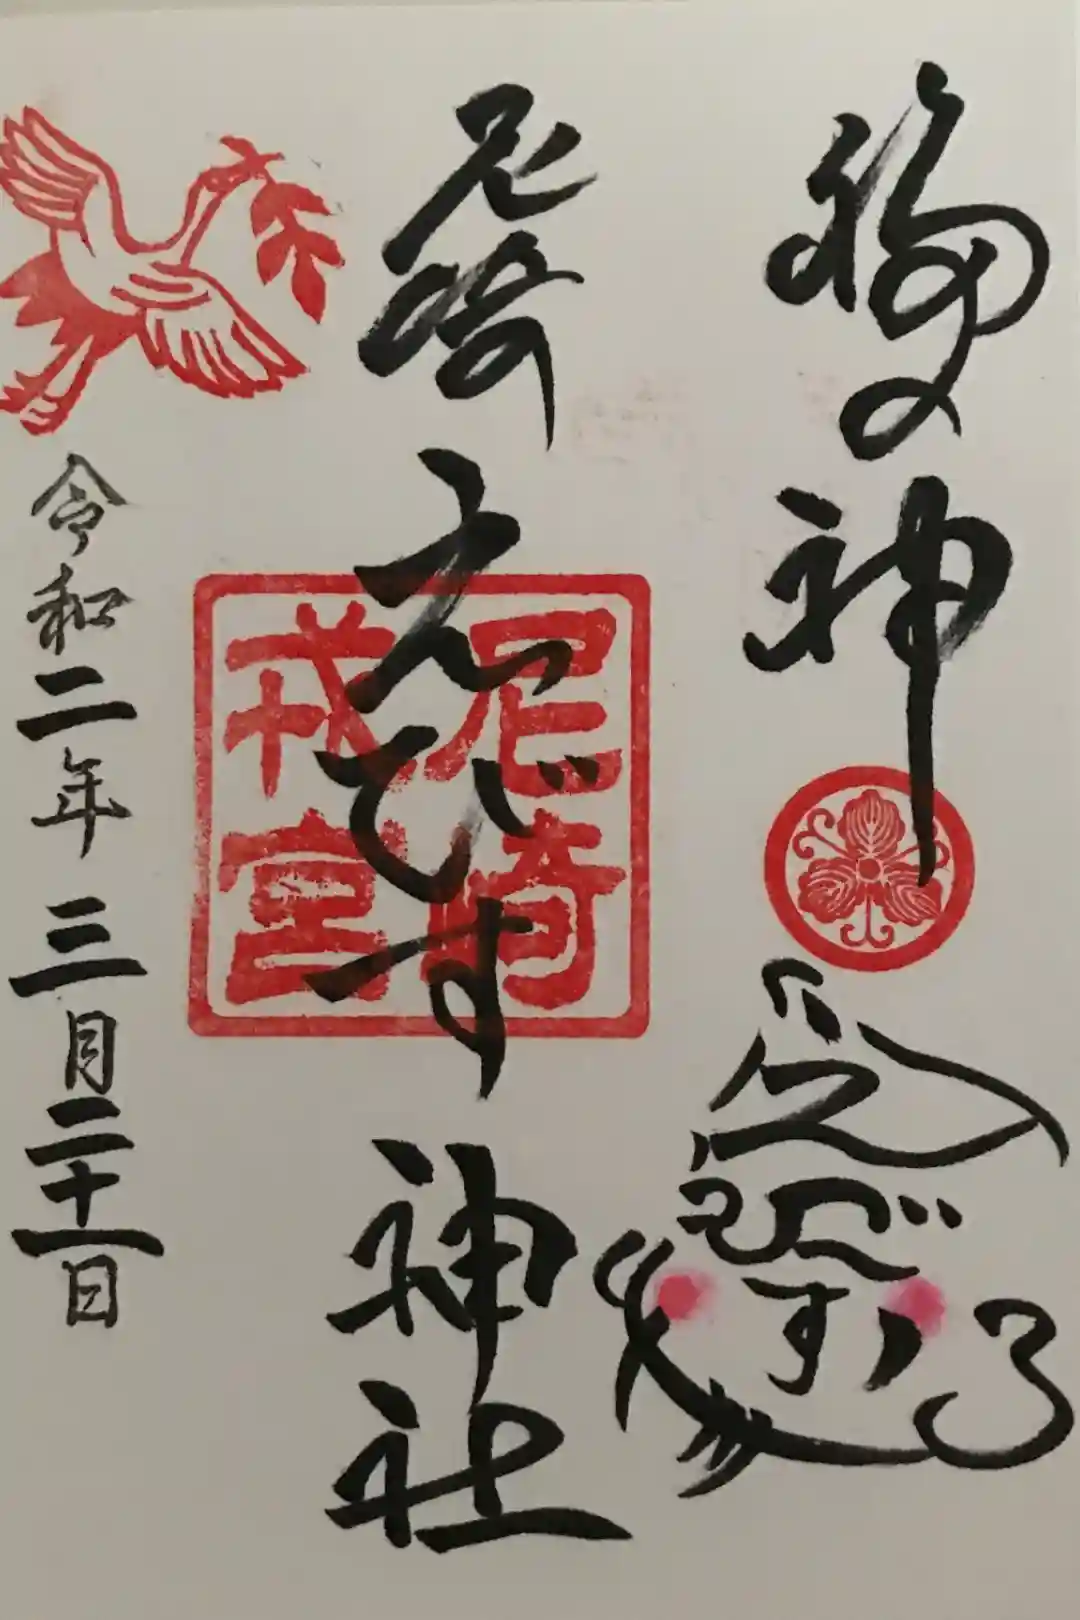 福の神
尼崎えびす神社
尼崎
戎宮
令和二年三月二十一日